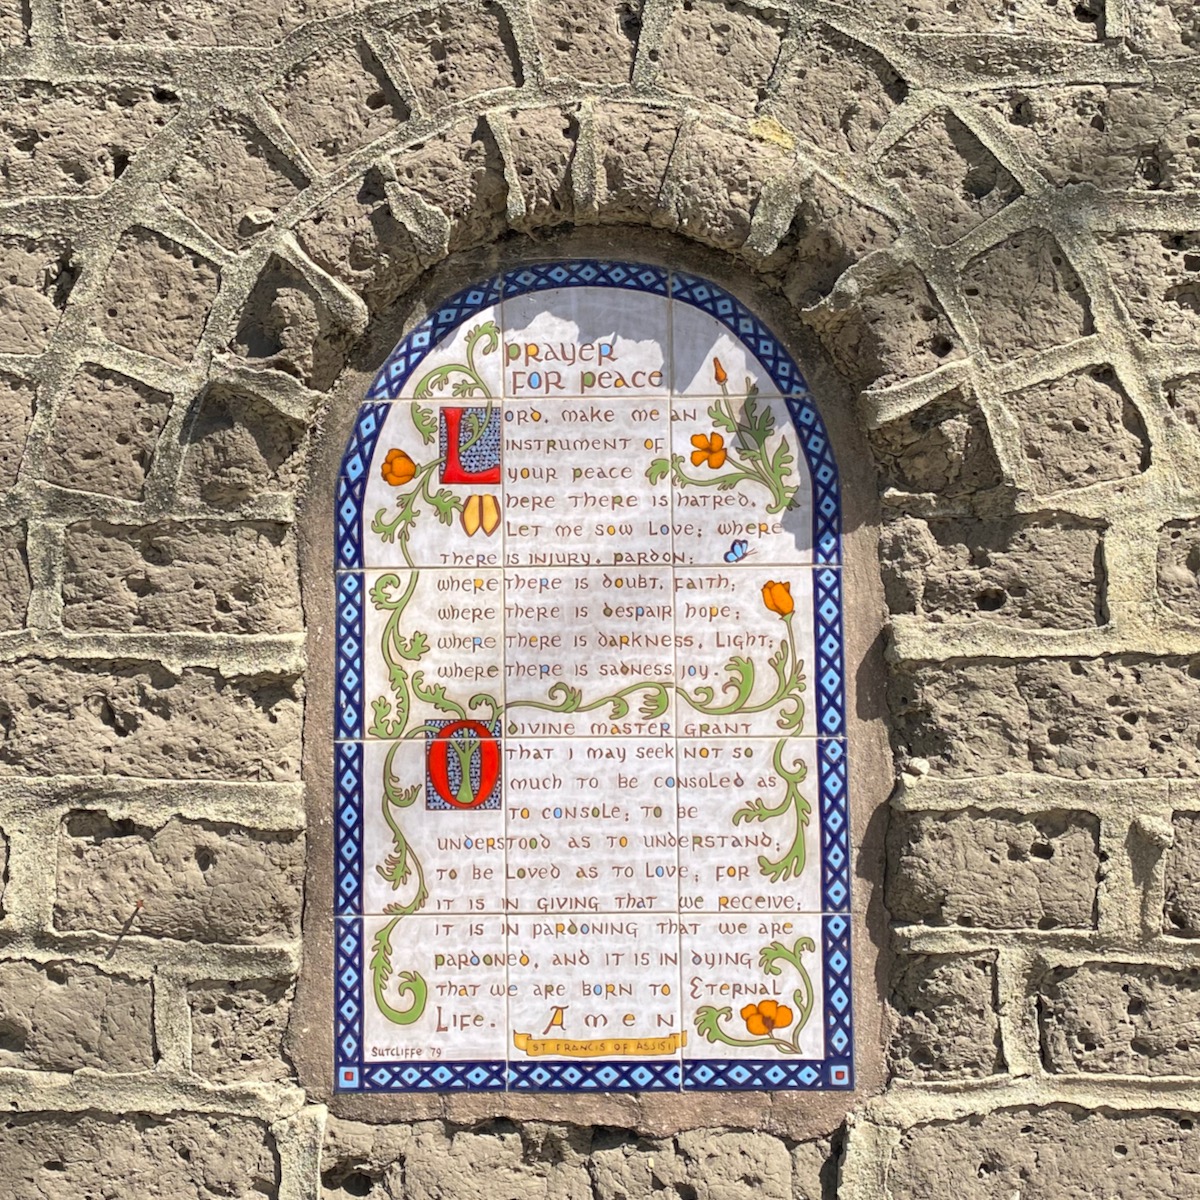 PRAYER
FOR PEACE
LORD, MAKE ME AN
INSTRUMENT OF
YOUR PEACE
WHERE THERE IS HATRED,
LET ME SOW LOVE; WHERE
THERE IS INJURY, PARDON;
WHERE THERE IS DOUBT, FAITH;
WHERE THERE IS DESPAIR HOPE;
WHERE THERE IS DARKNESS, LIGHT;
WHERE THERE IS SADNESS JOY.
O DIVINE MASTER GRANT
THAT I MAY SEEK NOT SO
MUCH TO BE CONSOLED AS
TO CONSOLE; TO BE
UNDERSTOOD AS TO UNDERSTAND;
TO BE LOVED AS TO LOVE; FOR
IT IS IN GIVING THAT WE RECEIVE;
IT IS IN PARDONING THAT WE ARE
PARDONED, AND IT IS IN DYING
THAT WE ARE BORN TO ETERNAL
LIFE. AMEN
ST FRANCIS OF ASSISI
SUTCLIFFE 79